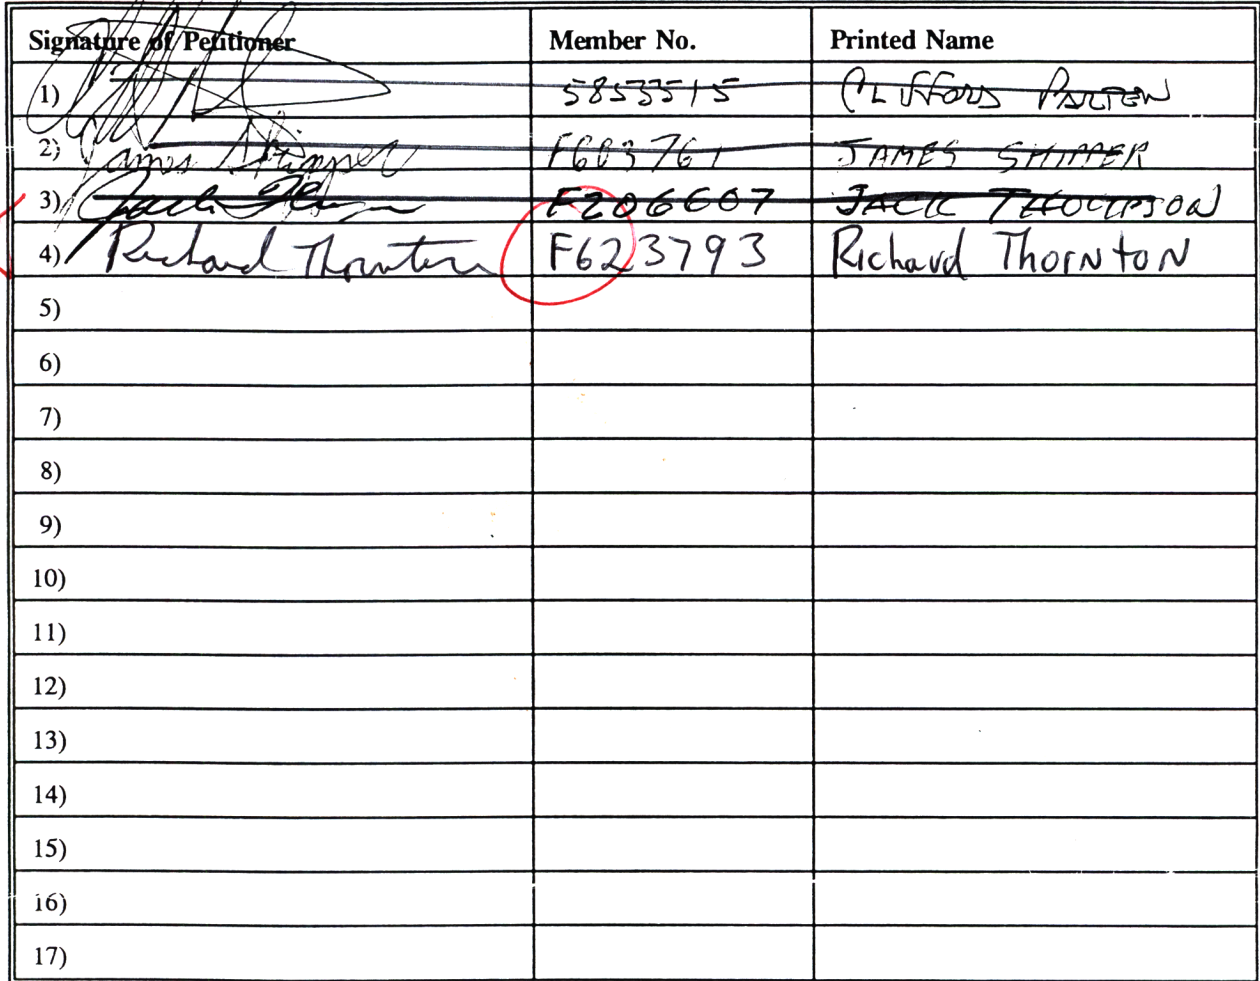 Signature of Petitioner Member No. Printed Name
1) 5853515 CLIFFORD PARTEN
2) James Shipper F603761 JAMES SHIPPER
3) Jack F206607 JACK THOMPSON
4) Richard Thornton F623793 Richard Thornton
5)
6)
7)
8)
9)
10)
11)
12)
13)
14)
15)
16)
17)